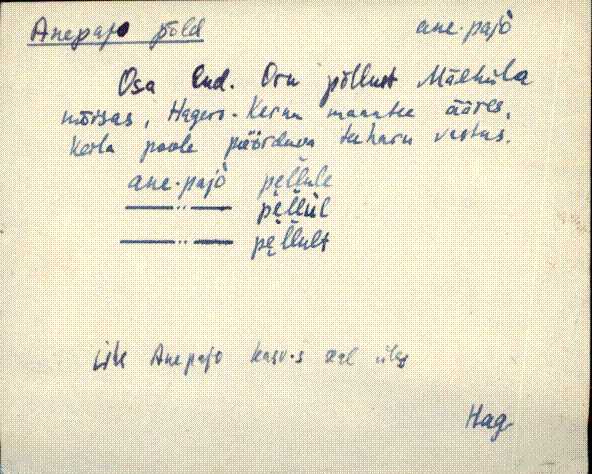 Anepajo põld ane·pajò
Osa end. Oru põllust Mäeküla
mõisas, Hageri-Keram maantee ääres,
Kerla poole pöörduva teeharu vastas.
ane·pajò pęl̆lule
—〃— pęl̆lùl
—〃— pęl̆lult
Anepajo kasv·s ülej
Hag